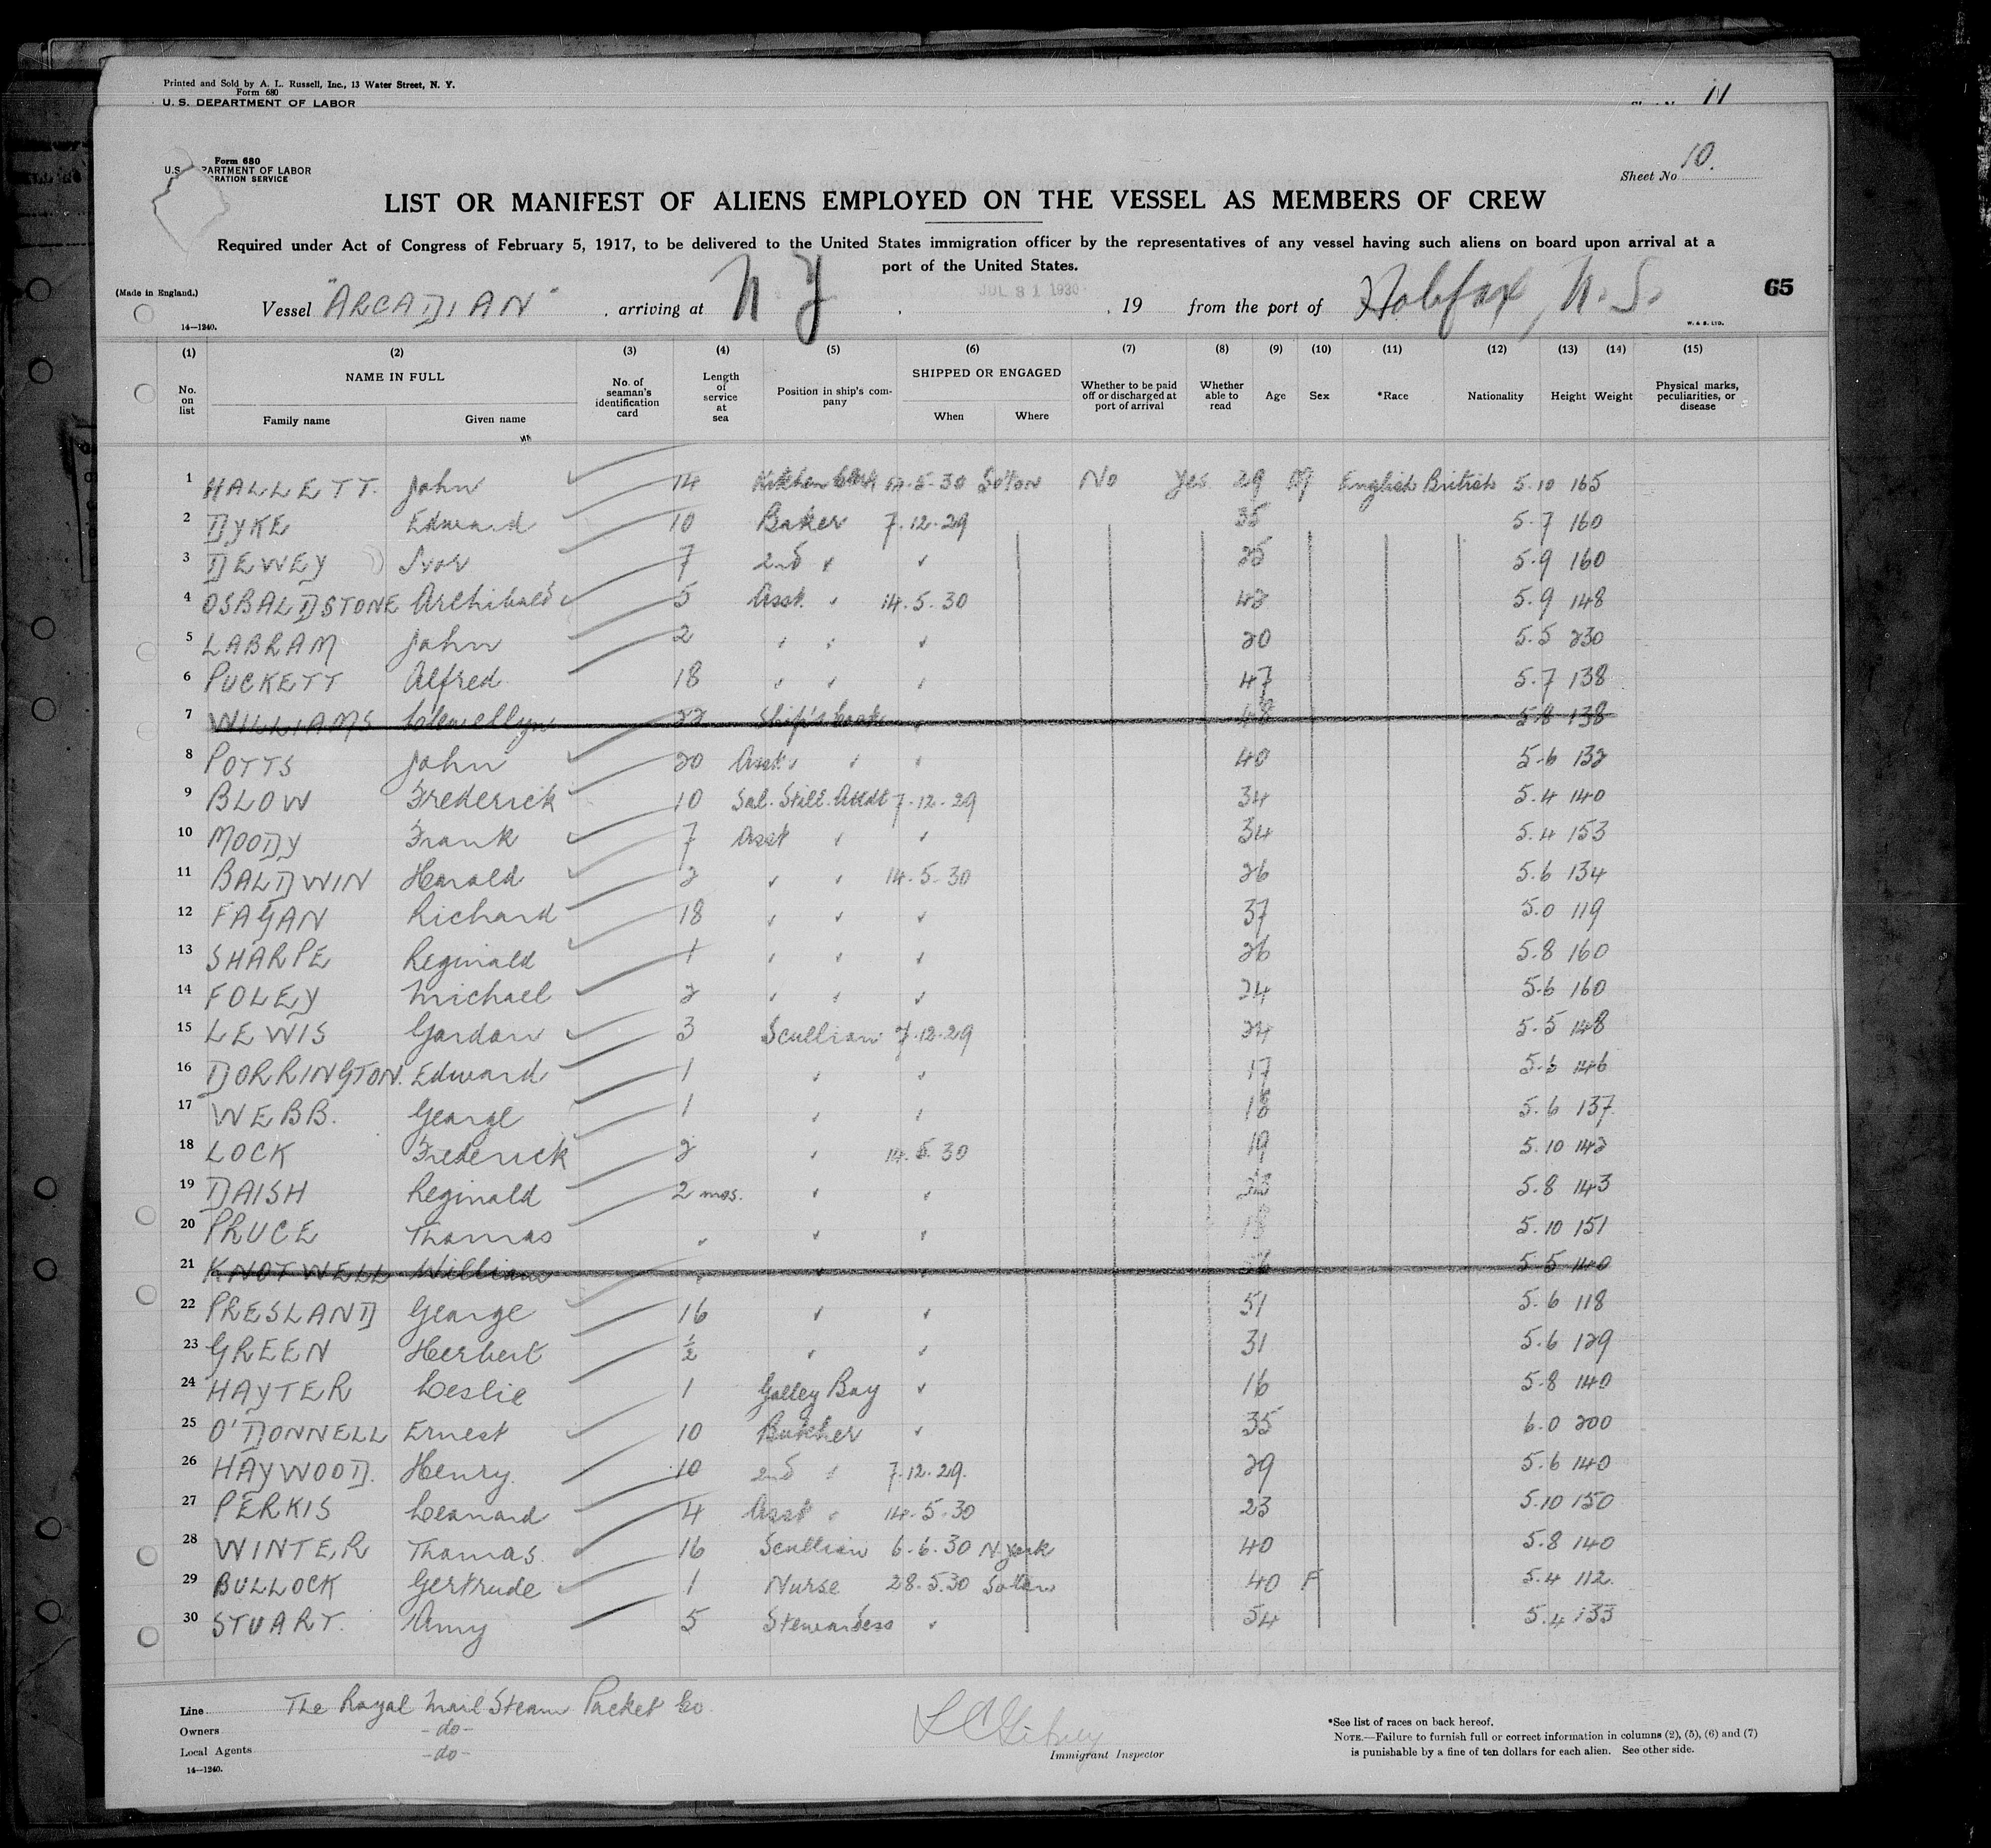 Printed and Sold by A. L. Russell, Inc., 13 Water Street, N. Y.
Form 680
U. S. DEPARTMENT OF LABOR
11
Form 680
U.S. DEPARTMENT OF LABOR
Sheet No 10.
LIST OR MANIFEST OF ALIENS EMPLOYED ON THE VESSEL AS MEMBERS OF CREW
Required under Act of Congress of February 5, 1917, to be delivered to the United States immigration officer by the representatives of any vessel having such aliens on board upon arrival at a
port of the United States.
(Made in England.)
Vessel "ARCADIAN" , arriving at N Y JUL 31 1930 , 19 from the port of Halifax, N.S. 65
14—1240.
W. & S. LTD.
(1) (2) (3) (4) (5) (6) (7) (8) (9) (10) (11) (12) (13) (14) (15)
No. on list NAME IN FULL Family name Given name No. of seaman's identification card Length of service at sea Position in ship's company SHIPPED OR ENGAGED When Where Whether to be paid off or discharged at port of arrival Whether able to read Age Sex *Race Nationality Height Weight Physical marks, peculiarities, or disease
1 HALLETT. John 14 Kitchen 5.30 Soton No Yes 29 M English British 5.10 165
2 DYKE Edward 10 Baker 7.12.29 35 5.7 160
3 DEWEY Ivor 7 2nd " " 25 5.9 160
4 OSBALDSTONE Archibald 5 Asst. " 14.5.30 42 5.9 148
5 LABRAM John 2 " " " 20 5.5 230
6 PUCKETT Alfred 18 " " " 47 5.7 138
7 WILLIAMS Llewellyn 22 Ship's Cook " 48 5.8 138
8 POTTS John 20 Asst " " " 40 5.6 132
9 BLOW Frederick 10 Sal. Still. Attdt 7.12.29 34 5.4 140
10 MOODY Frank 7 Asst " " 34 5.4 153
11 BALDWIN Harold 2 " " 14.5.30 26 5.6 134
12 FAGAN Richard 18 " " " 37 5.0 119
13 SHARPE Reginald 1 " " " 26 5.8 160
14 FOLEY Michael 2 " " " 24 5.6 160
15 LEWIS Gordon 3 Scullion 7.12.29 24 5.5 148
16 DORRINGTON. Edward 1 " " 17 5.6 146
17 WEBB. George 1 " " 18 5.6 137
18 LOCK Frederick 2 " 14.5.30 19 5.10 142
19 DAISH Reginald 2 mos. " " 23 5.8 143
20 PRUCE Thomas " " " 18 5.10 151
21 KNOTWELL William " " " 5.5 140
22 PRESLAND George 16 " " 51 5.6 118
23 GREEN Herbert ½ " " 31 5.6 129
24 HAYTER Leslie 1 Galley Boy " 16 5.8 140
25 O'DONNELL Ernest 10 Butcher " 35 6.0 200
26 HAYWOOD. Henry. 10 2nd " 7.12.29. 29 5.6 140
27 PERKIS Leonard 4 Asst " 14.5.30 23 5.10 150
28 WINTER Thomas 16 Scullion 6.6.30 N. York 40 5.8 140
29 BULLOCK Gertrude 1 Nurse 28.5.30 Soton 40 F 5.4 112.
30 STUART. Amy 5 Stewardess " 54 5.4 133
Line The Royal Mail Steam Packet Co.
Owners -do-
Local Agents -do-
14—1240.
Immigrant Inspector
*See list of races on back hereof.
NOTE.—Failure to furnish full or correct information in columns (2), (5), (6) and (7)
is punishable by a fine of ten dollars for each alien. See other side.